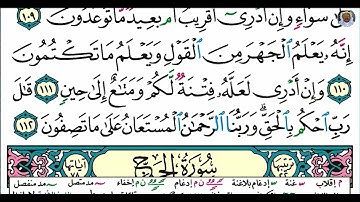 سَوَآءٍ وَإِنْ أَدْرِىٓ أَقَرِيبٌ أَم بَعِيدٌ مَّا تُوعَدُونَ ١٠٩
إِنَّهُۥ يَعْلَمُ ٱلْجَهْرَ مِنَ ٱلْقَوْلِ وَيَعْلَمُ مَا تَكْتُمُونَ
١١٠ وَإِنْ أَدْرِى لَعَلَّهُۥ فِتْنَةٌ لَّكُمْ وَمَتَٰعٌ إِلَىٰ حِينٍ ١١١ قَٰلَ
رَبِّ ٱحْكُم بِٱلْحَقِّ ۗ وَرَبُّنَا ٱلرَّحْمَٰنُ ٱلْمُسْتَعَانُ عَلَىٰ مَا تَصِفُونَ ١١٢
سُورَةُ الْحَجِّ
م إقلاب غنة إدغام بلاغنة ن م إدغام ن م إخفاء مد متصل مد منفصل